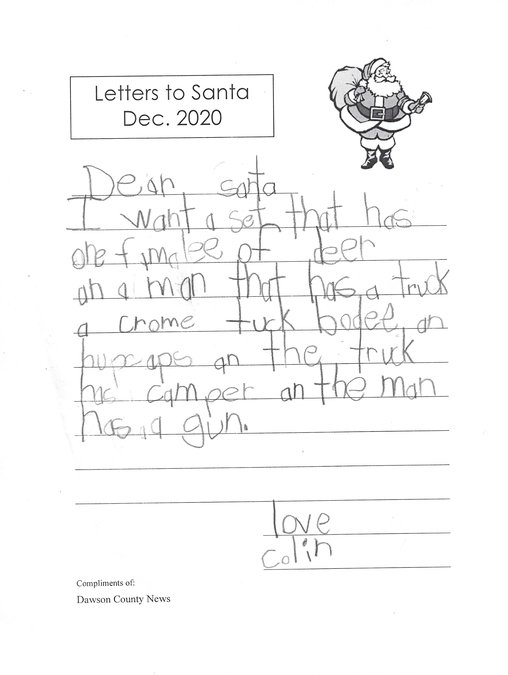 Letters to Santa
Dec. 2020
Dear santa
I want a set that has
one famalee of deer
an a man that has a truck
a crome tuck bodee an
hupcaps an the truck
has camper an the man
has a gun.
love
colin
Compliments of:
Dawson County News